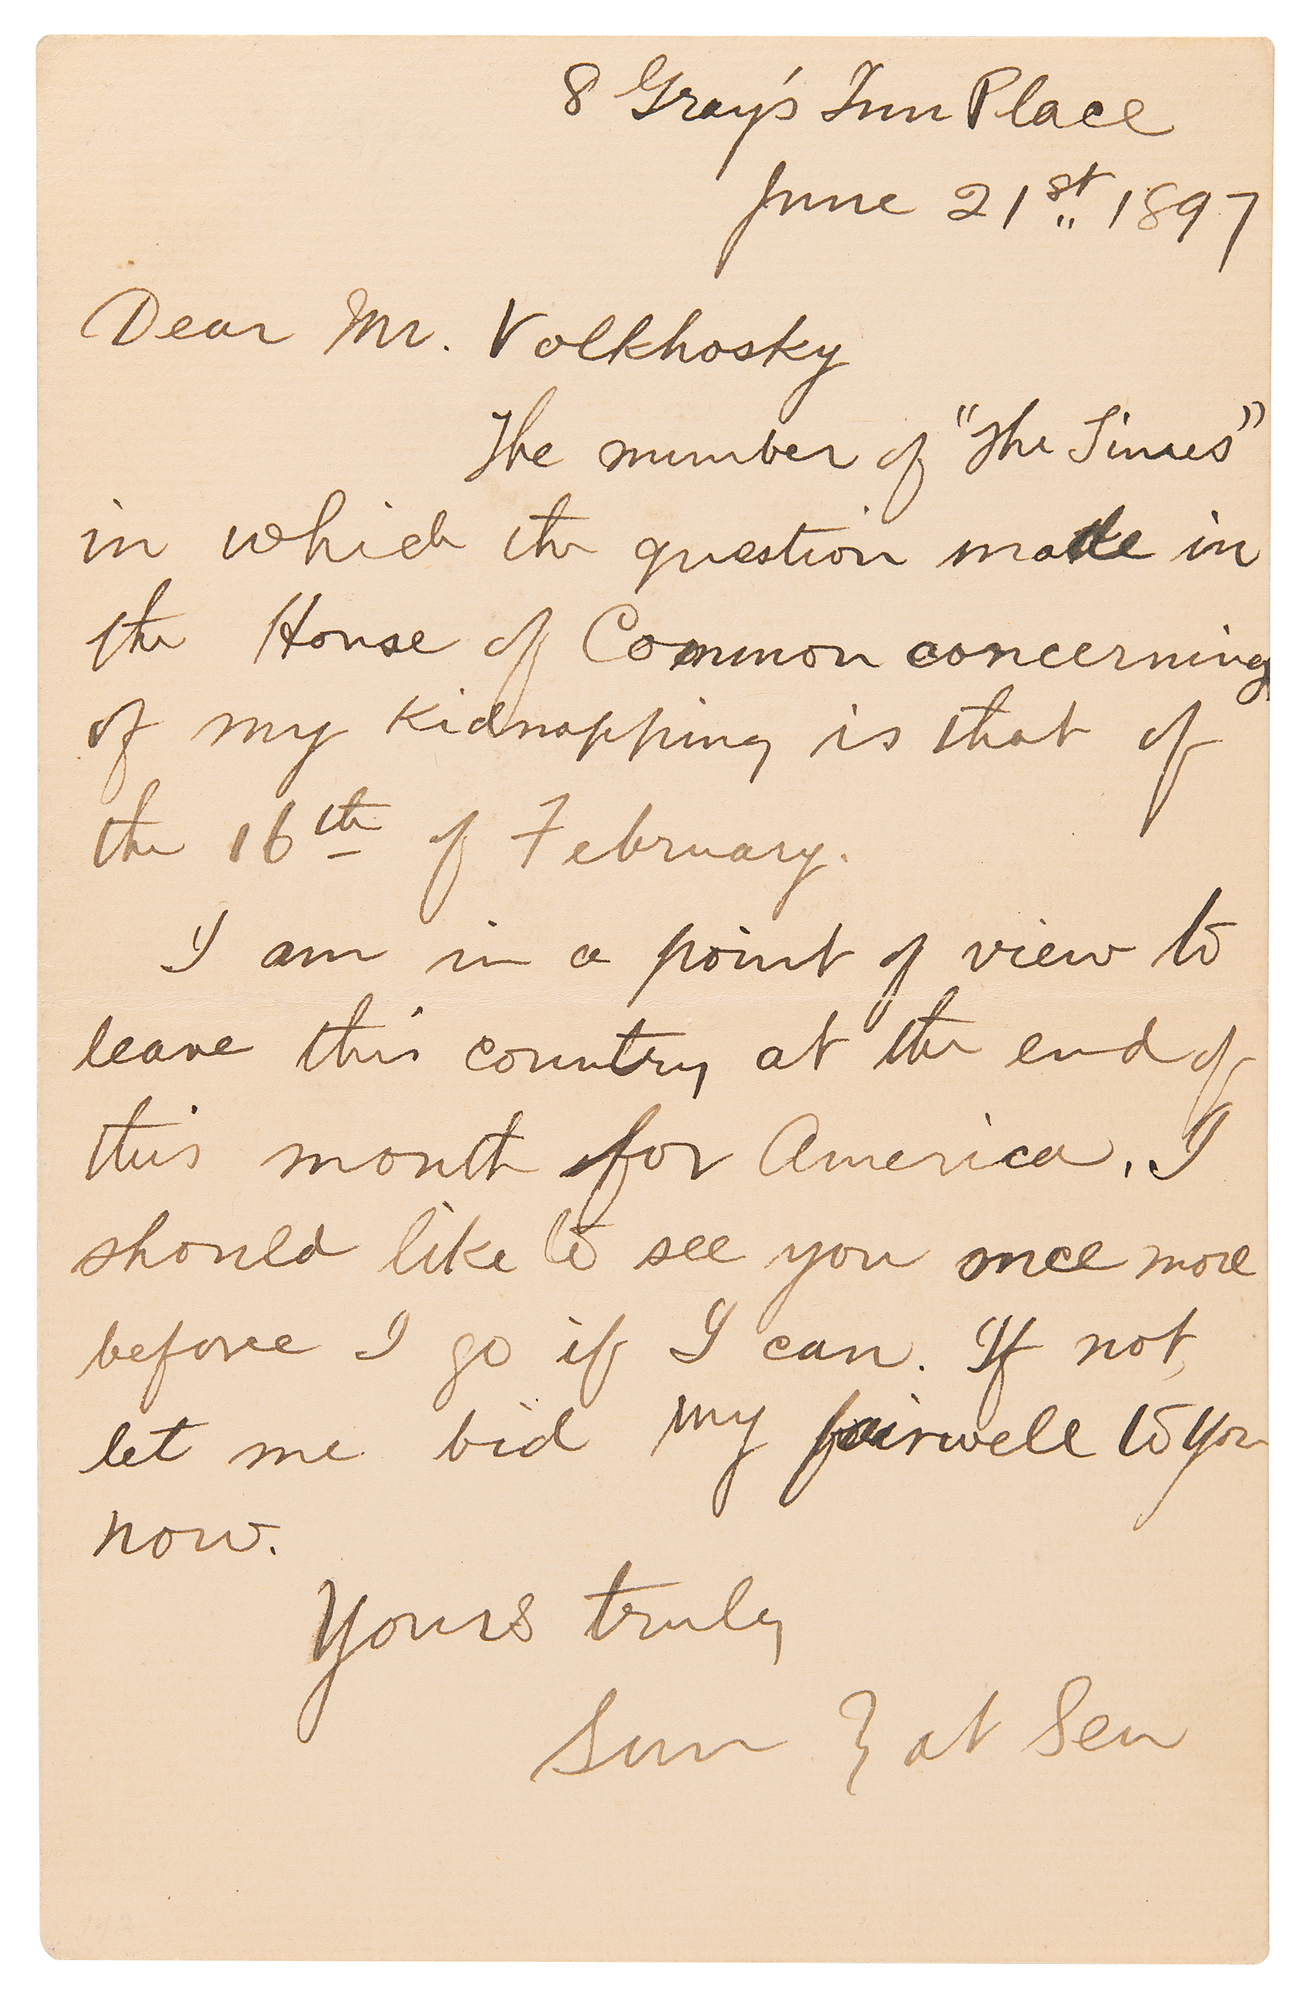 8 Gray's Inn Place
June 21st 1897
Dear Mr. Volkhosky
The number of "The Times"
in which the question made in
the House of Common concerning
of my kidnapping is that of
the 16th of February.
I am in a point of view to
leave this country at the end of
this month for America. I
should like to see you once more
before I go if I can. If not,
let me bid my fairwell to you
now.
Yours truly
Sun Yat Sen